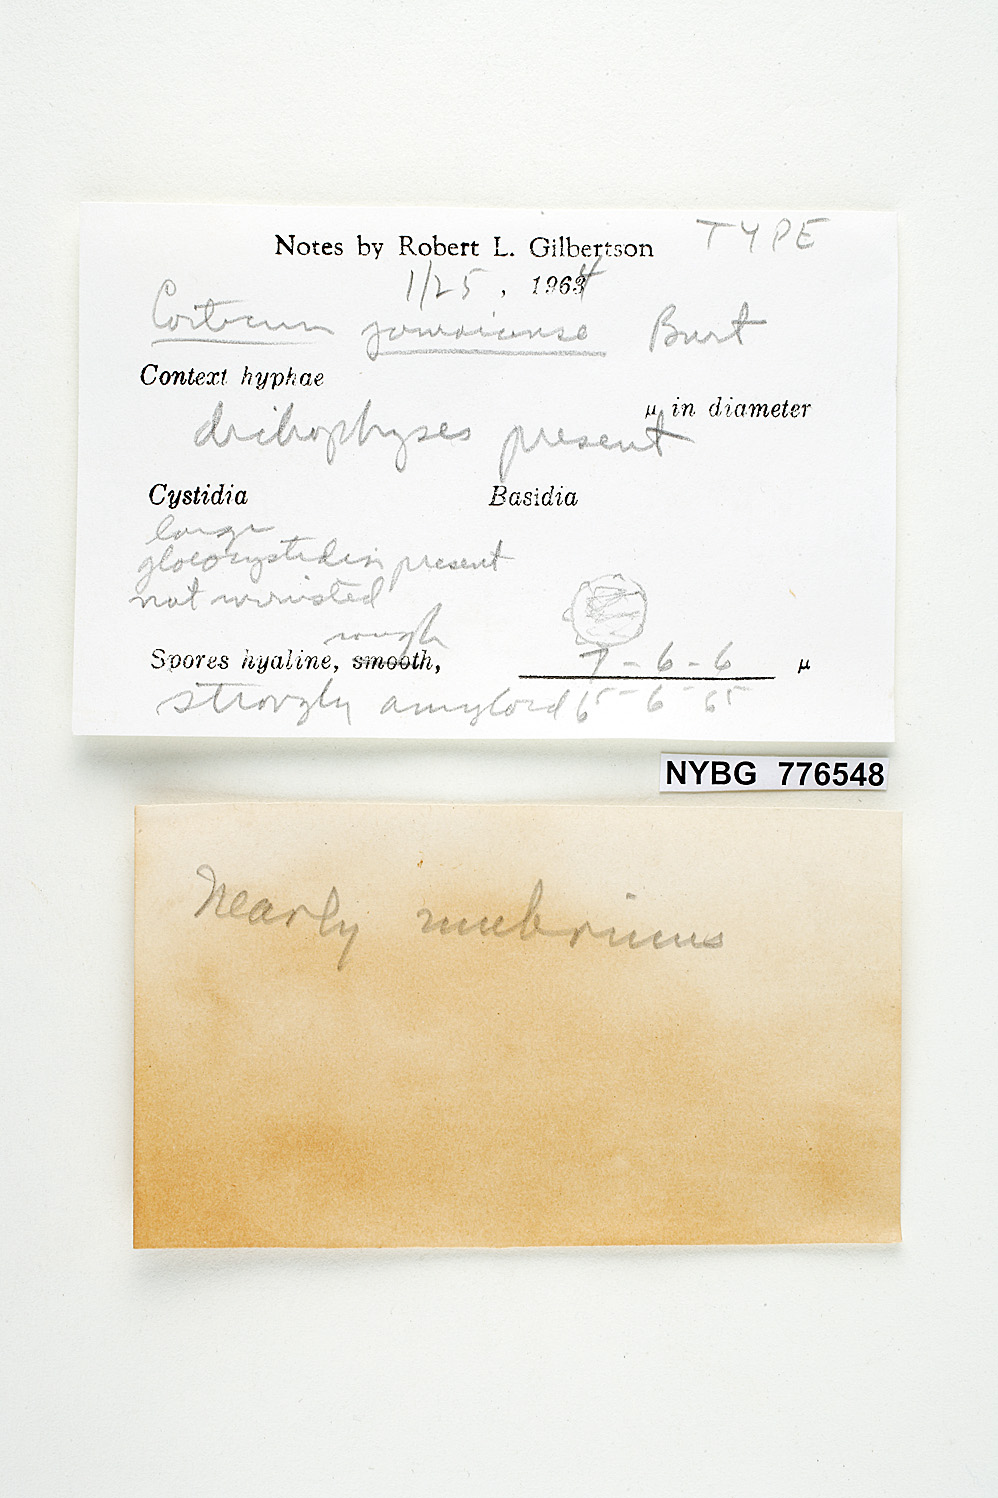 Notes by Robert L. Gilbertson TYPE
1/25, 1964
Corticium jamaicense Burt
Context hyphae
μ in diameter
present
Cystidia Basidia
large
gloeocystidia present
not
rough
Spores hyaline, smooth, 7-6-6 μ
strongly amyloid 65-6-65
NYBG 776548
Nearly